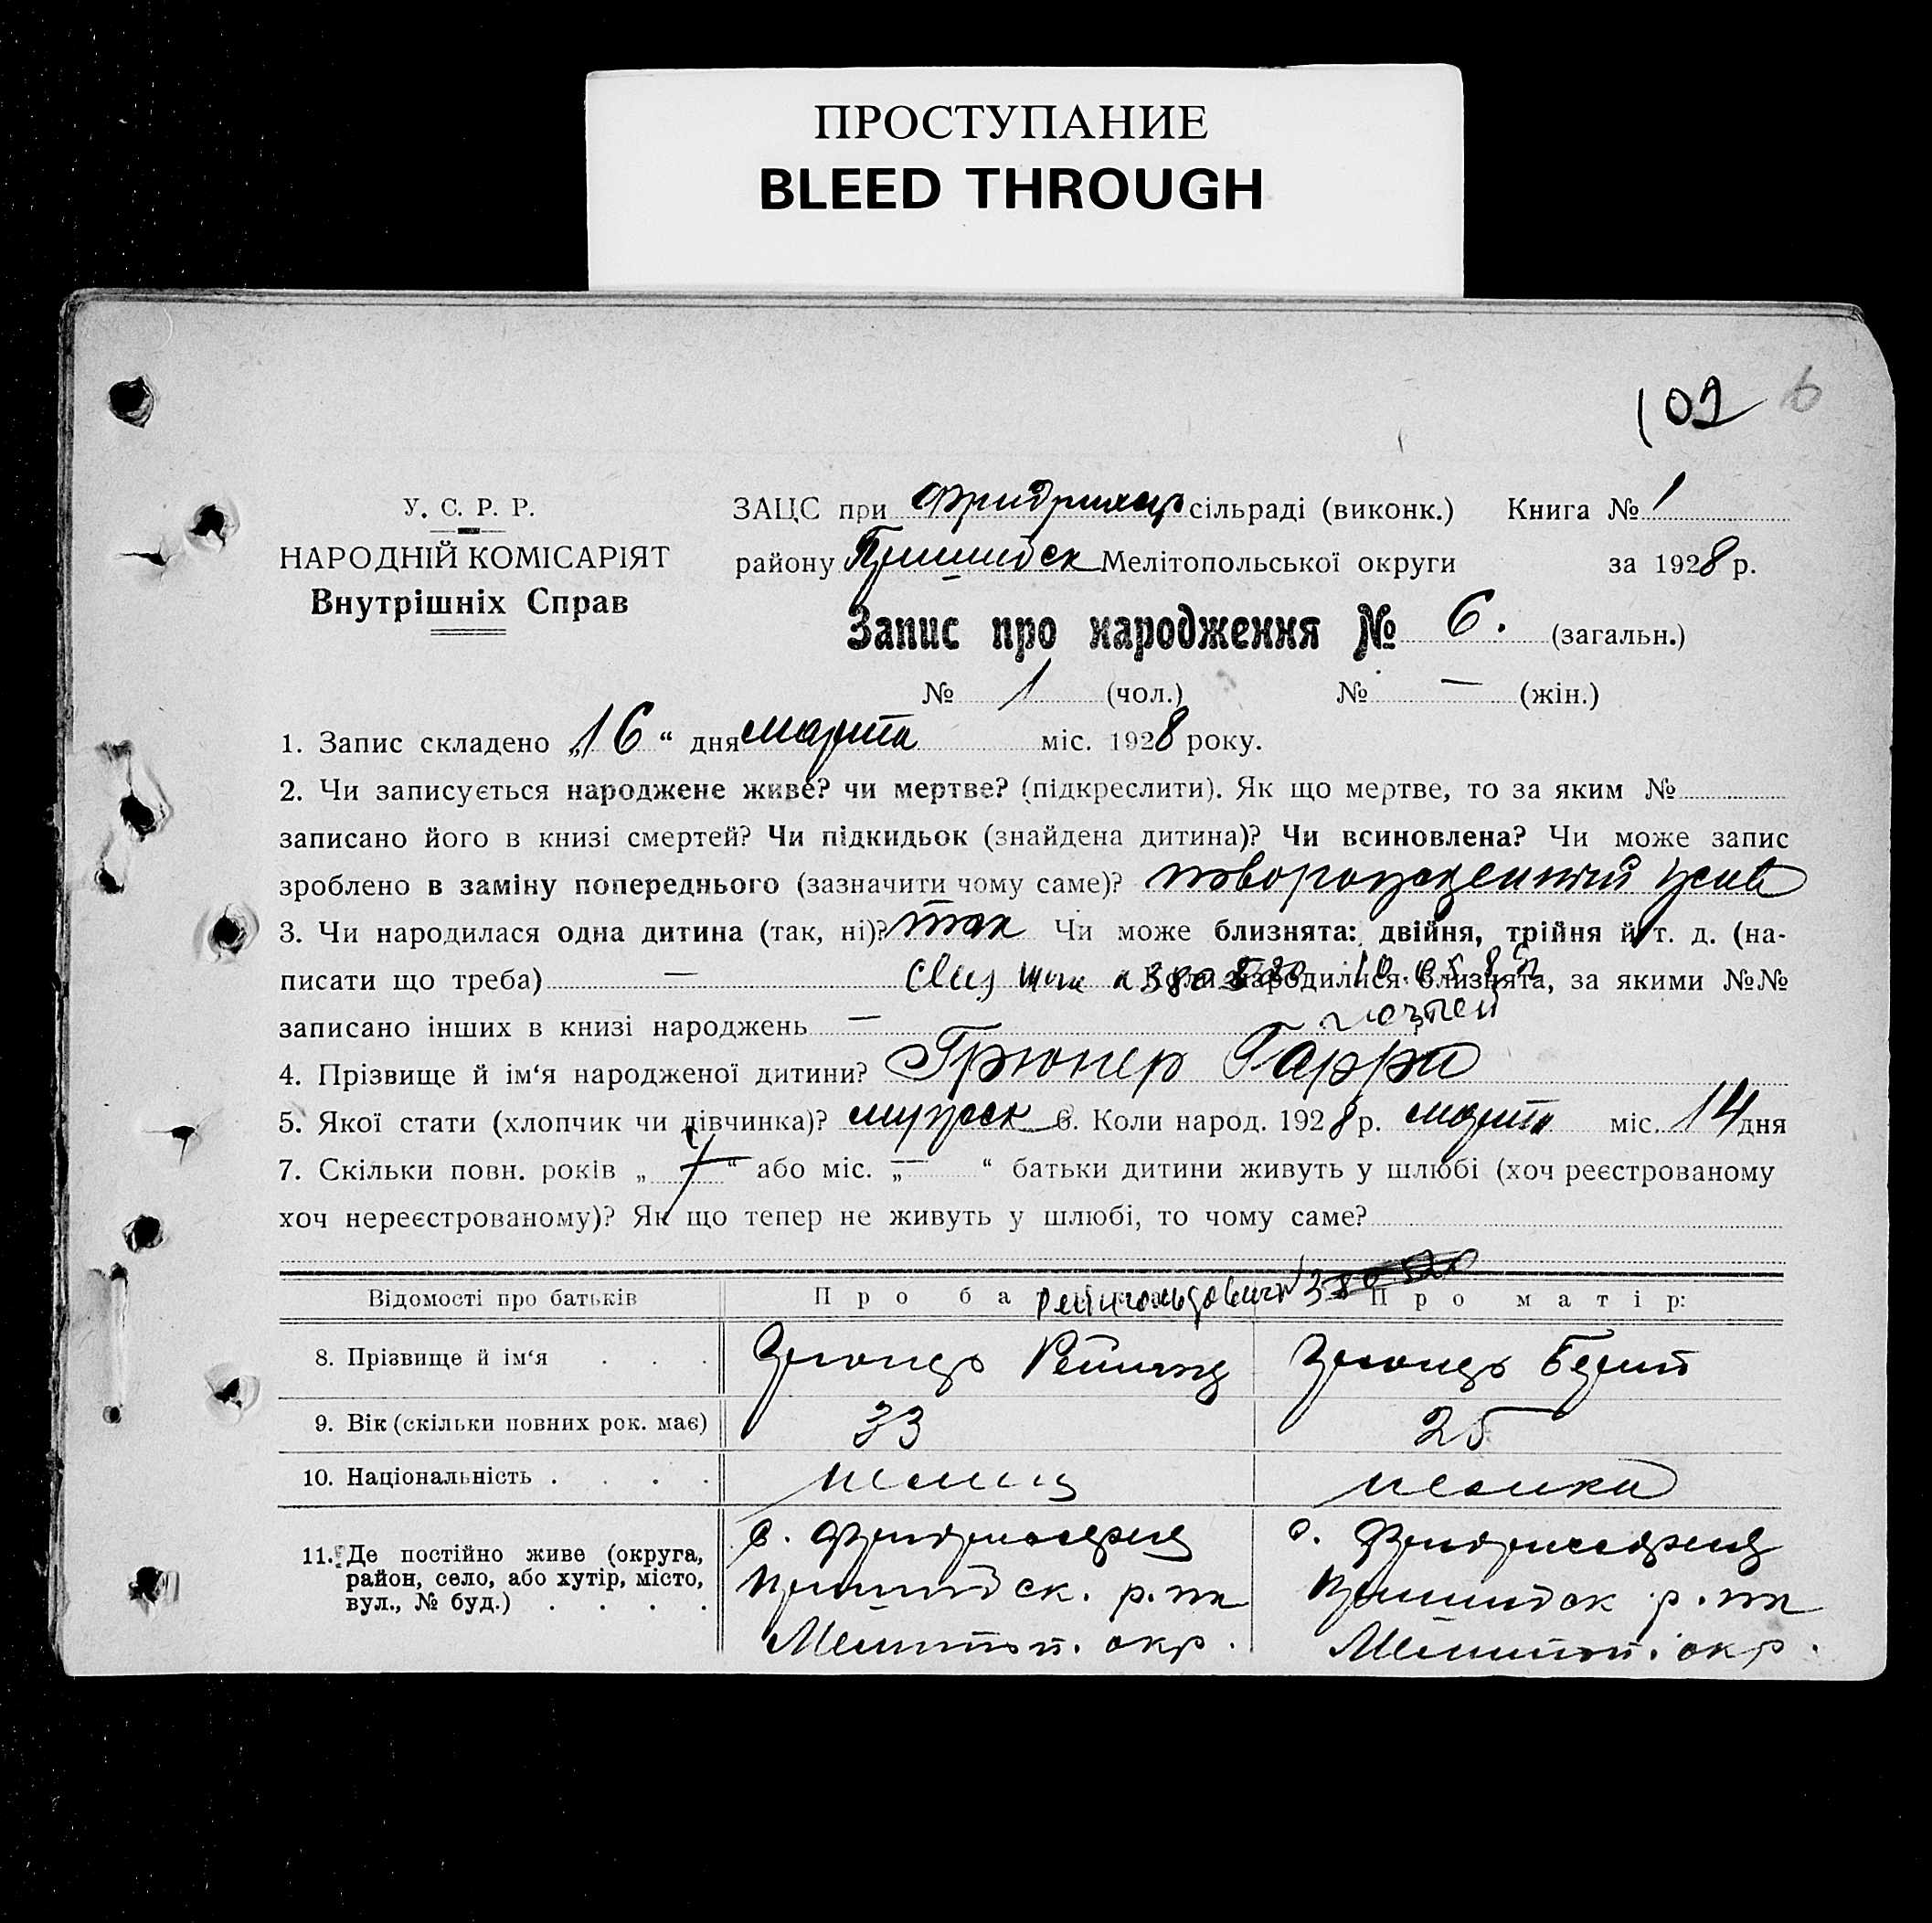 ПРОСТУПАНИЕ
BLEED THROUGH
102 6
У. С. Р. Р.
НАРОДНІЙ КОМІСАРІЯТ
Внутрішніх Справ
ЗАЦС при сільраді (виконк.) Книга № 1
району Пришибск Мелітопольської округи за 1928 р.
Запис про народження № 6. (загальн.)
№ 1 (чол.) № — (жін.)
1. Запис складено „16“ дня марта міс. 1928 року.
2. Чи записується народжене живе? чи мертве? (підкреслити). Як що мертве, то за яким №
записано його в книзі смертей? Чи підкидьок (знайдена дитина)? Чи всиновлена? Чи може запис
зроблено в заміну попереднього (зазначити чому саме)?
3. Чи народилася одна дитина (так, ні)? так Чи може близнята: двійня, трійня й т. д. (на-
писати що треба) — Коли народилися близнята, за якими №№
записано інших в книзі народжень —
4. Прізвище й ім‘я народженої дитини? Грюнер Гарри
5. Якої стати (хлопчик чи дівчинка)? мужск 6. Коли народ. 1928 р. марта міс. 14 дня
7. Скільки повн. років „ “ або міс. „ — “ батьки дитини живуть у шлюбі (хоч реєстрованому
хоч нереєстрованому)? Як що тепер не живуть у шлюбі, то чому саме?
Відомості про батьків Про батька Рейнгольдович Про матір:
8. Прізвище й ім‘я . . .
9. Вік (скільки повних рок. має) 33 25
10. Національність . . . . немец немка
11. Де постійно живе (округа,
район, село, або хутір, місто,
вул., № буд.) . . . .
с. с.
Пришибск. р.на Пришибск р.на
Мелитоп. окр. Мелитоп. окр.